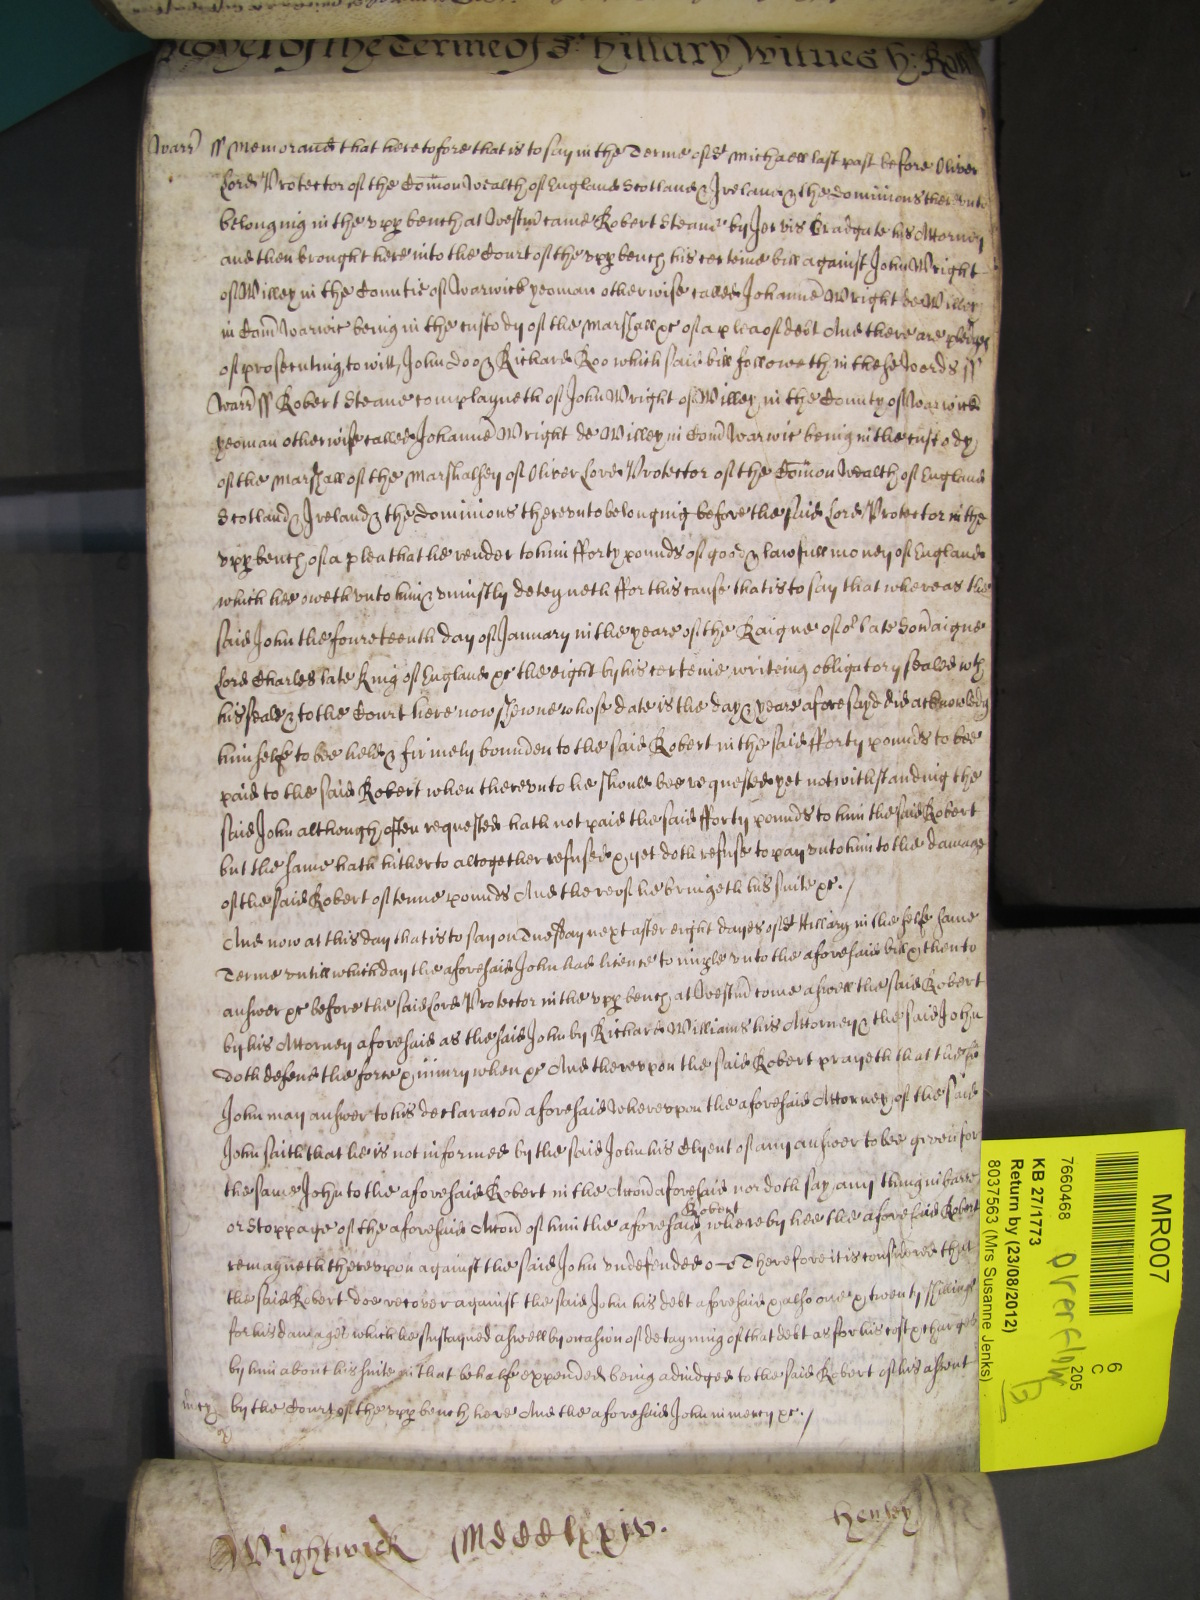 of the Terme of St. Hillary Witnes H: Roll
Warr ss Memorand that heretofore that is to say in the Terme of St Michaell last past before Oliver
Lord Protector of the Comon Wealth of England Scotland & Ireland & the Dominions thereunto
belonging in the upp bench at Westm came Robert Steane by Jervis Bradgate his Attorney
and then brought here into the Court of the upp bench his certeine bill against John Wright
of Willey in the Countie of Warwick yeoman otherwise called Johanne Wright de Willey
in Com Warwic being in the custody of the Marshall &c of a plea of debt And there are pledges
of prosecuting, to witt, John Doo & Richard Roo which said bill followeth in these words ss
Warr ss Robert Steane complayneth of John Wright of Willey in the County of Warwick
yeoman otherwise called Johanne Wright de Willey in Com Warwic being in the custody
of the Marshall of the Marshalsey of Oliver Lord Protector of the Comon Wealth of England
Scotland & Ireland & the Dominions thereunto belonging before the said Lord Protector in the
upp bench of a plea that he render to him fforty pounds of good & lawfull money of England
which hee oweth unto him & uniustly deteyneth ffor this cause that is to say that whereas the
said John the fourteenth day of January in the yeare of the Raigne of or late Soveraigne
Lord Charles late King of England &c the eight by his certeine writeing obligatory sealed wth
his seale & to the Court here now showne whose date is the day & yeare aforesayd did acknowledg
himselfe to bee held & firmely bounden to the said Robert in the said fforty pounds to bee
paid to the said Robert when thereunto he should bee requested yet notwithstanding the
said John although often requested hath not paid the said fforty pounds to him the said Robert
but the same hath hitherto altogether refused & yet doth refuse to pay unto him to the damage
of the said Robert of tenne pounds And thereof he bringeth his suite &c./
And now at this day that is to say on Tuesday next after eight dayes of St Hillary in the selfe same
Terme untill which day the aforesaid John had licence to imple unto the aforesaid bill & then to
answer &c before the said Lord Protector in the upp bench at Westm come aswell the said Robert
by his Attorney aforesaid as the said John by Richard Williams his Attorney & the said John
doth defend the force & iniury when &c And thereupon the said Robert prayeth that the said
John may answer to his declaracon aforesaid whereupon the aforesaid Attorney of the said
John saith that he is not informed by the said John his Clyent of any answer to bee given for
the same John to the aforesaid Robert in the Accon aforesaid nor doth say any thing in barre
or stoppage of the aforesaid Accon of him the aforesaid Robert whereby hee the aforesaid Robert
remayneth thereupon against the said John undefended Therefore it is considered that
the said Robert doe recover against the said John his debt aforesaid & also one & twenty shillings
for his damages which he sustayned aswell by occasion of detayning of that debt as for his cost & charges
by him about his suite in that behalfe expended being adiudged to the said Robert of his assent
mcy by the Court of the upp bench here And the aforesaid John in mercy &c./
Wightwick Mdcclxxiv. Henley
MR007
6
C
205
7660468
KB 27/1773
Return by (23/08/2012)
8037563 (Mrs Susanne Jenks)
overflow